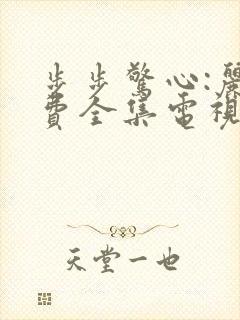 步步驚心:麗
費全集電視
天堂一也